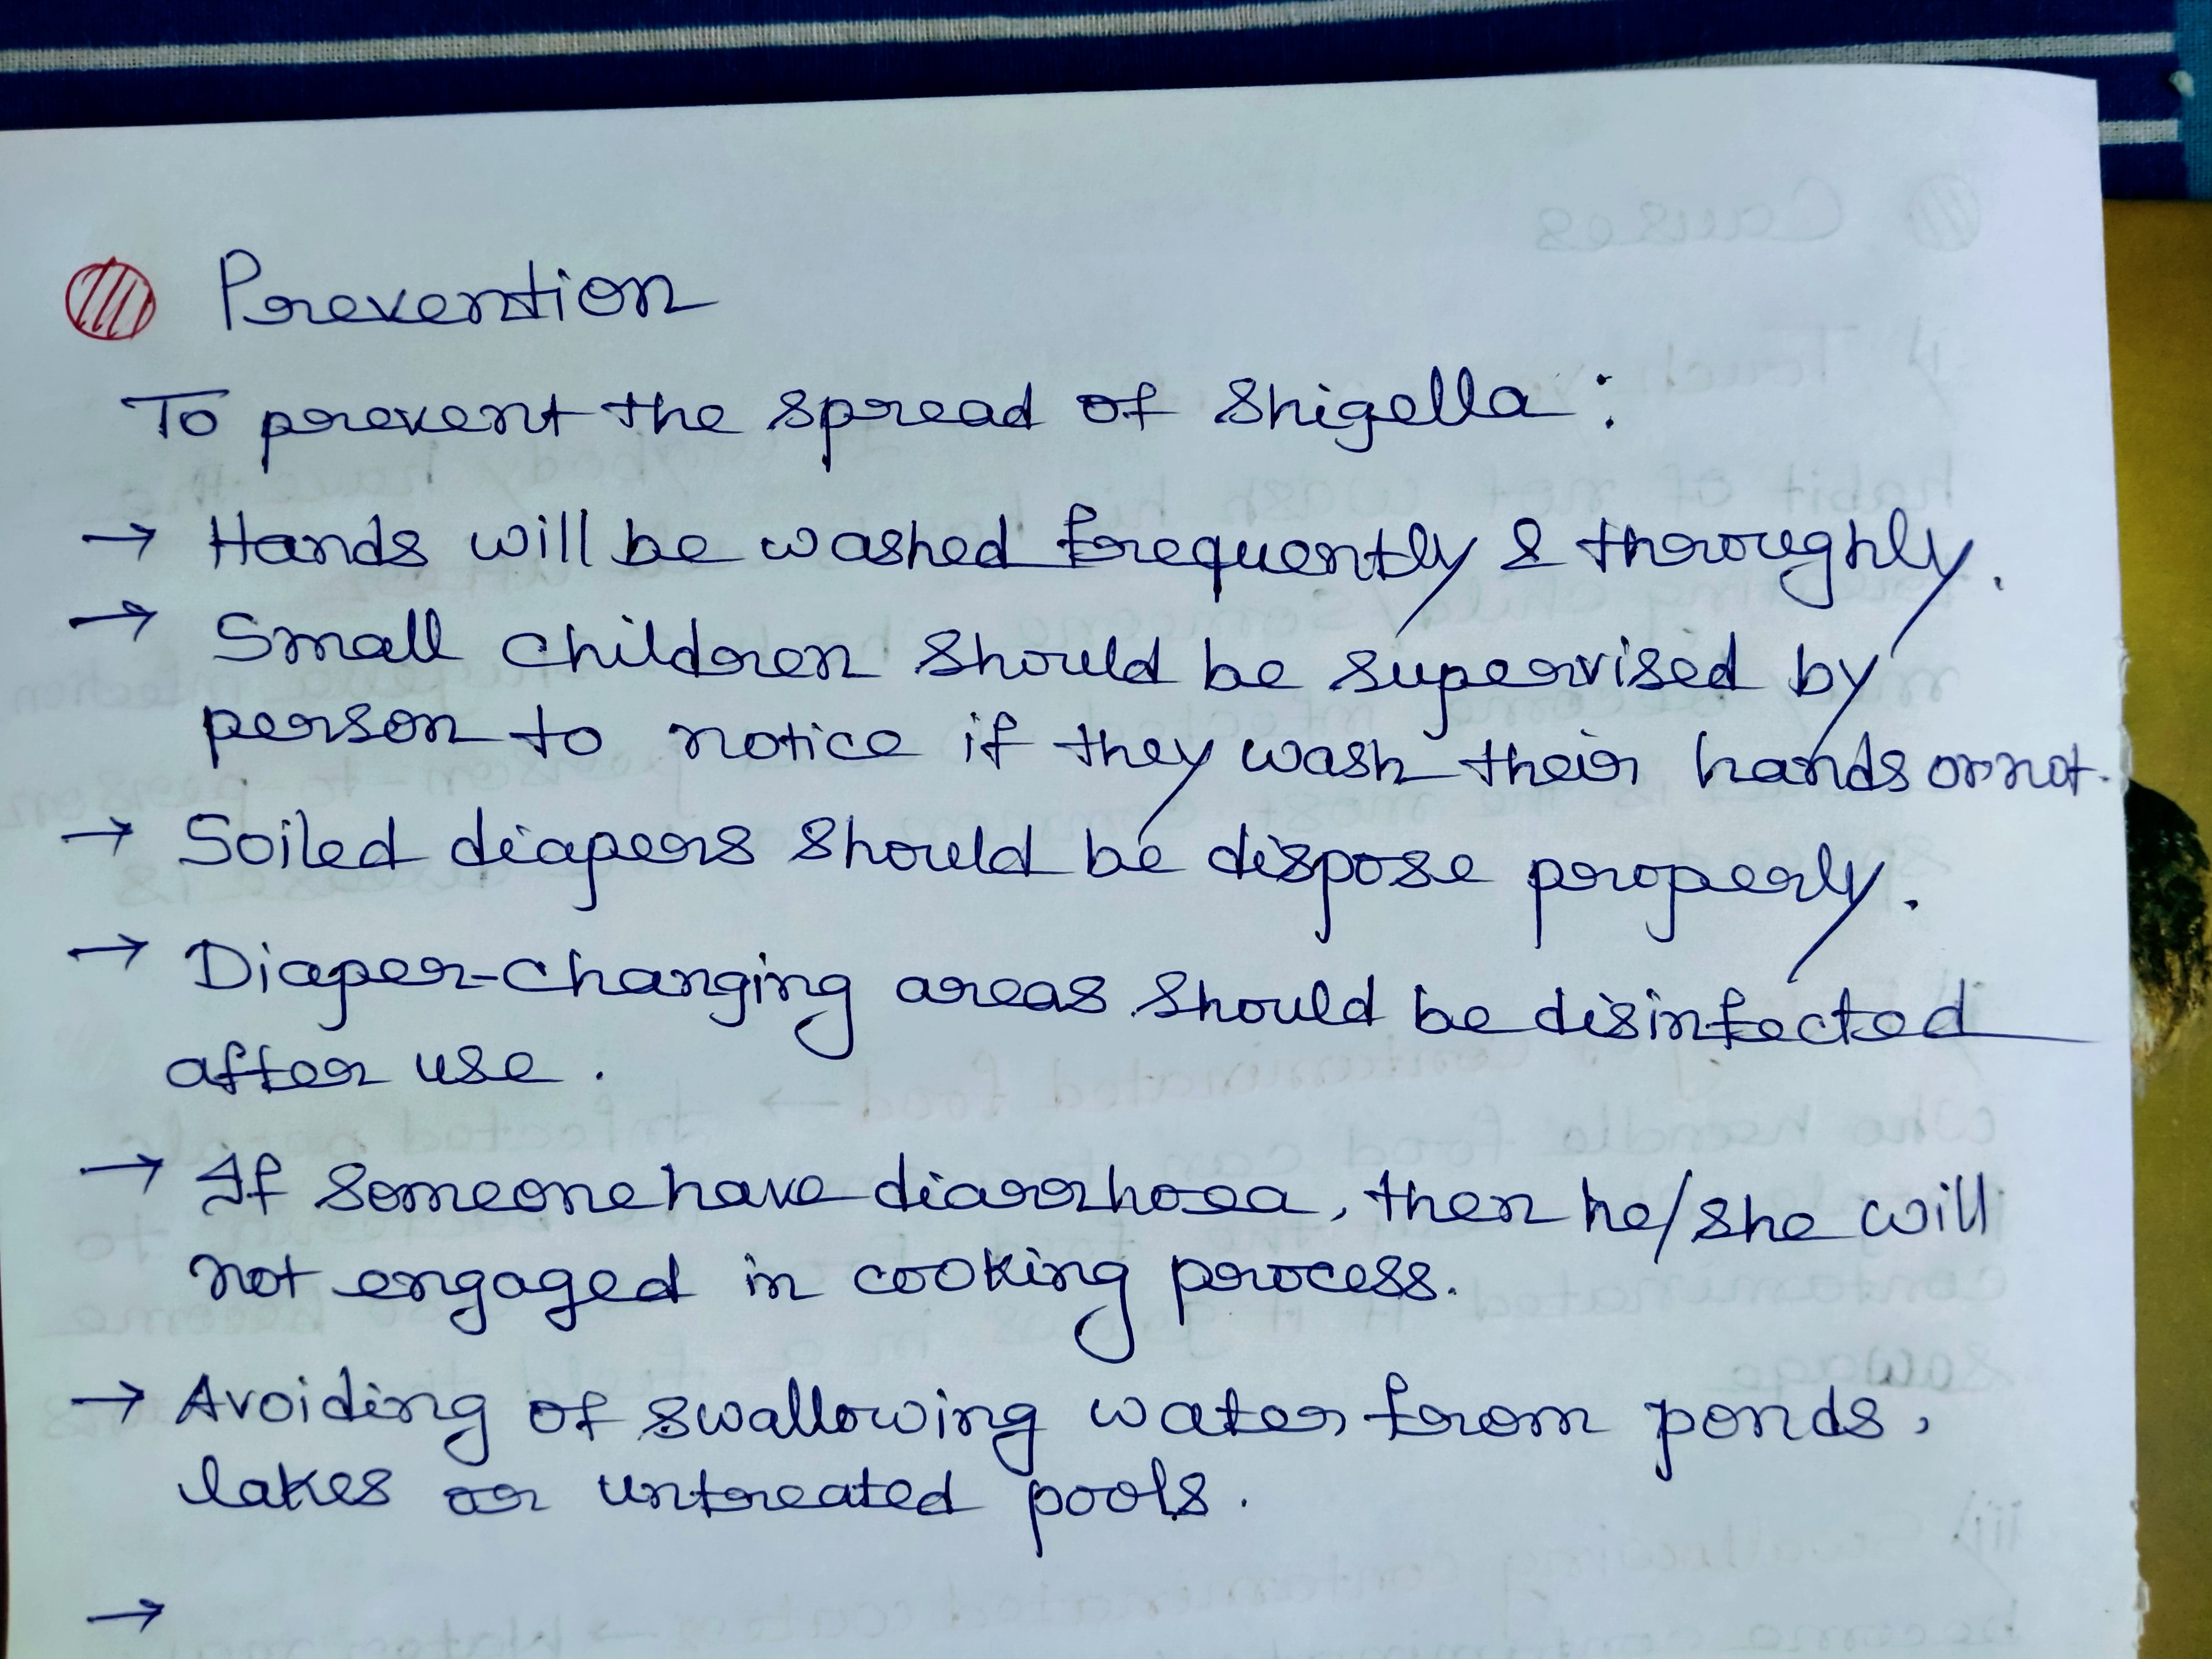 Prevention
To prevent the spread of Shigella :
→ Hands will be washed frequently & thoroughly.
→ Small children should be supervised by
person to notice if they wash their hands or not.
→ Soiled diapers should be dispose properly.
→ Diaper-changing areas should be disinfected
after use.
→ If someone have diarrhoea, then he/she will
not engaged in cooking process.
→ Avoiding of swallowing water from ponds,
lakes or untreated pools.
→